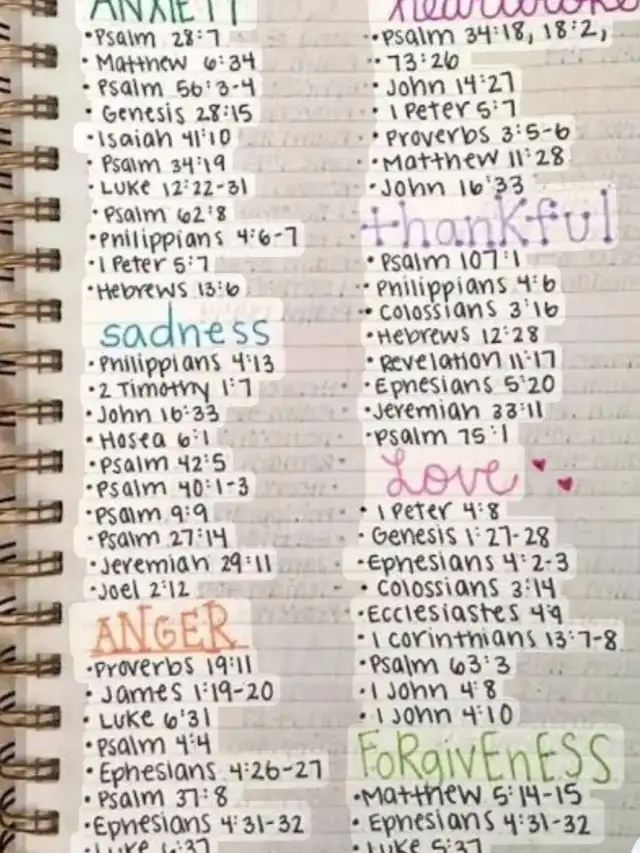 ANXIETY
•Psalm 28:7
•Matthew 6:34
•Psalm 56:3-4
•Genesis 28:15
•Isaiah 41:10
•Psalm 34:19
•Luke 12:22-31
•Psalm 62:8
•Philippians 4:6-7
•1 Peter 5:7
•Hebrews 13:6
sadness
•Philippians 4:13
•2 Timothy 1:7
•John 16:33
•Hosea 6:1
•Psalm 42:5
•Psalm 40:1-3
•Psalm 9:9
•Psalm 27:14
•Jeremiah 29:11
•Joel 2:12
ANGER
•Proverbs 19:11
•James 1:19-20
•Luke 6:31
•Psalm 4:4
•Ephesians 4:26-27
•Psalm 37:8
•Ephesians 4:31-32
•Luke 6:37
heartbroke
•Psalm 34:18, 18:2,
73:26
•John 14:27
•1 Peter 5:7
•Proverbs 3:5-6
•Matthew 11:28
•John 16:33
thankful
•Psalm 107:1
•Philippians 4:6
•Colossians 3:16
•Hebrews 12:28
•Revelation 11:17
•Ephesians 5:20
•Jeremiah 33:11
•Psalm 75:1
Love
•1 Peter 4:8
•Genesis 1:27-28
•Ephesians 4:2-3
•Colossians 3:14
•Ecclesiastes 4:9
•1 Corinthians 13:7-8
•Psalm 63:3
•1 John 4:8
•1 John 4:10
FoRgivEnESS
•Matthew 5:14-15
•Ephesians 4:31-32
•Luke 5:37